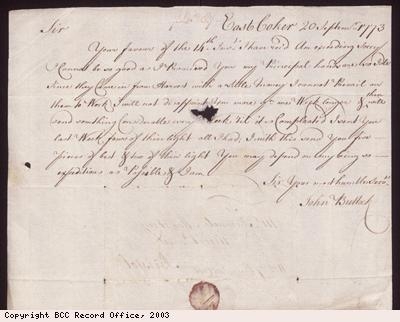 East Coker 20 Septemr. 1773
Sir
Your favour of the 14th Inst. I have recd. Am exceeding Sorry
I Cannot be so good as I Promised You my Principal hands are so Idle
Since they Came in from Harvest with a little Money I cannot Prevail on
them to Work I will not disappoint You more than one Week longer & will
send something Considerable every Week til it is Compleated I sent You
last Week four of them light all I had, I with this send You five
Pieces of best & two of them light You may depend on my being as
expeditious as Possable & I am
Sir Your most humble Servt.
John Bullock
Copyright BCC Record Office, 2003